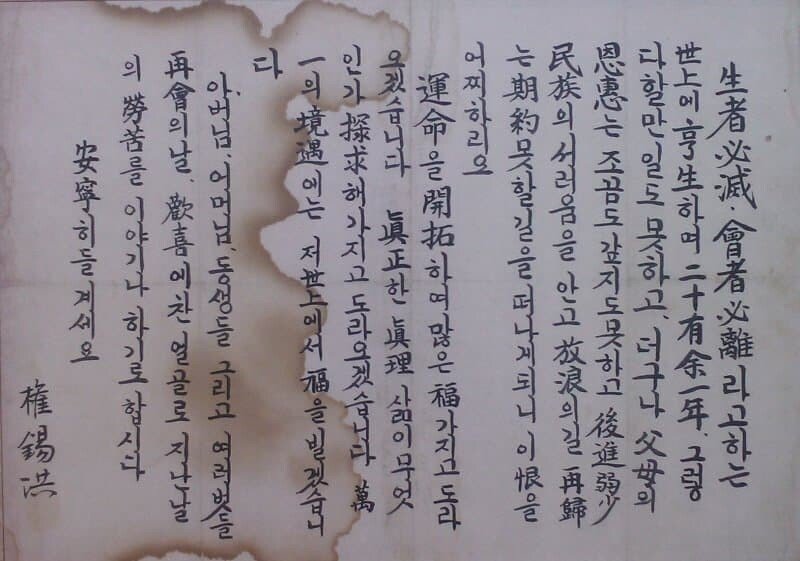 生者必滅. 會者必離라고하는
世上에 亨生하며 二十有余一年. 그렇
다할만일도못하고, 더구나 父母의
恩惠는 조끔도 갚지도못하고 後進弱少
民族의서러움을 안고 放浪의길 再歸
는 期約못할길을떠나게되니 이恨을
어찌하리요
運命을 開拓하여많은 福가지고도라
오겠습니다 眞正한 眞理 삶이무엇
인가 探求해가지고도라오겠습니다 萬
一의 境遇에는 저世上에서 福을빌겠습니
다
아버님, 어머님, 동생들 그리고 여러벗들
再會의날, 歡喜에찬얼골로 지난날
의 勞苦를 이야기나 하기로합시다
安寧히들계세요
権錫洪